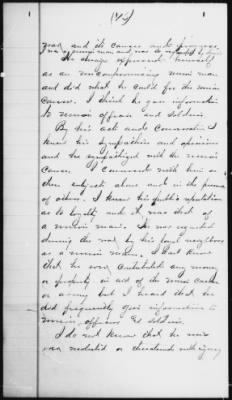 war and its causes and progress.
was a union man and was so regarded by him
He always expressed himself
as an uncompromising union man
and did what he could for the union
cause. I think he gave information
to union officers and soldiers.
By his acts and conversation I
knew his sympathies and opinions
and he sympathized with the union
cause. I conversed with him on
these subjects alone and in the presence
of others. I knew his public reputation
as to loyalty and it was that of
a union man. He was regarded
during the war by his loyal neighbors
as a union man. I don't know
that he ever contributed any money
or property in aid of the union cause
or army but I heard that he
did frequently give information to
union officers and soldiers.
I do not know that he was
ever molested or threatened with injury